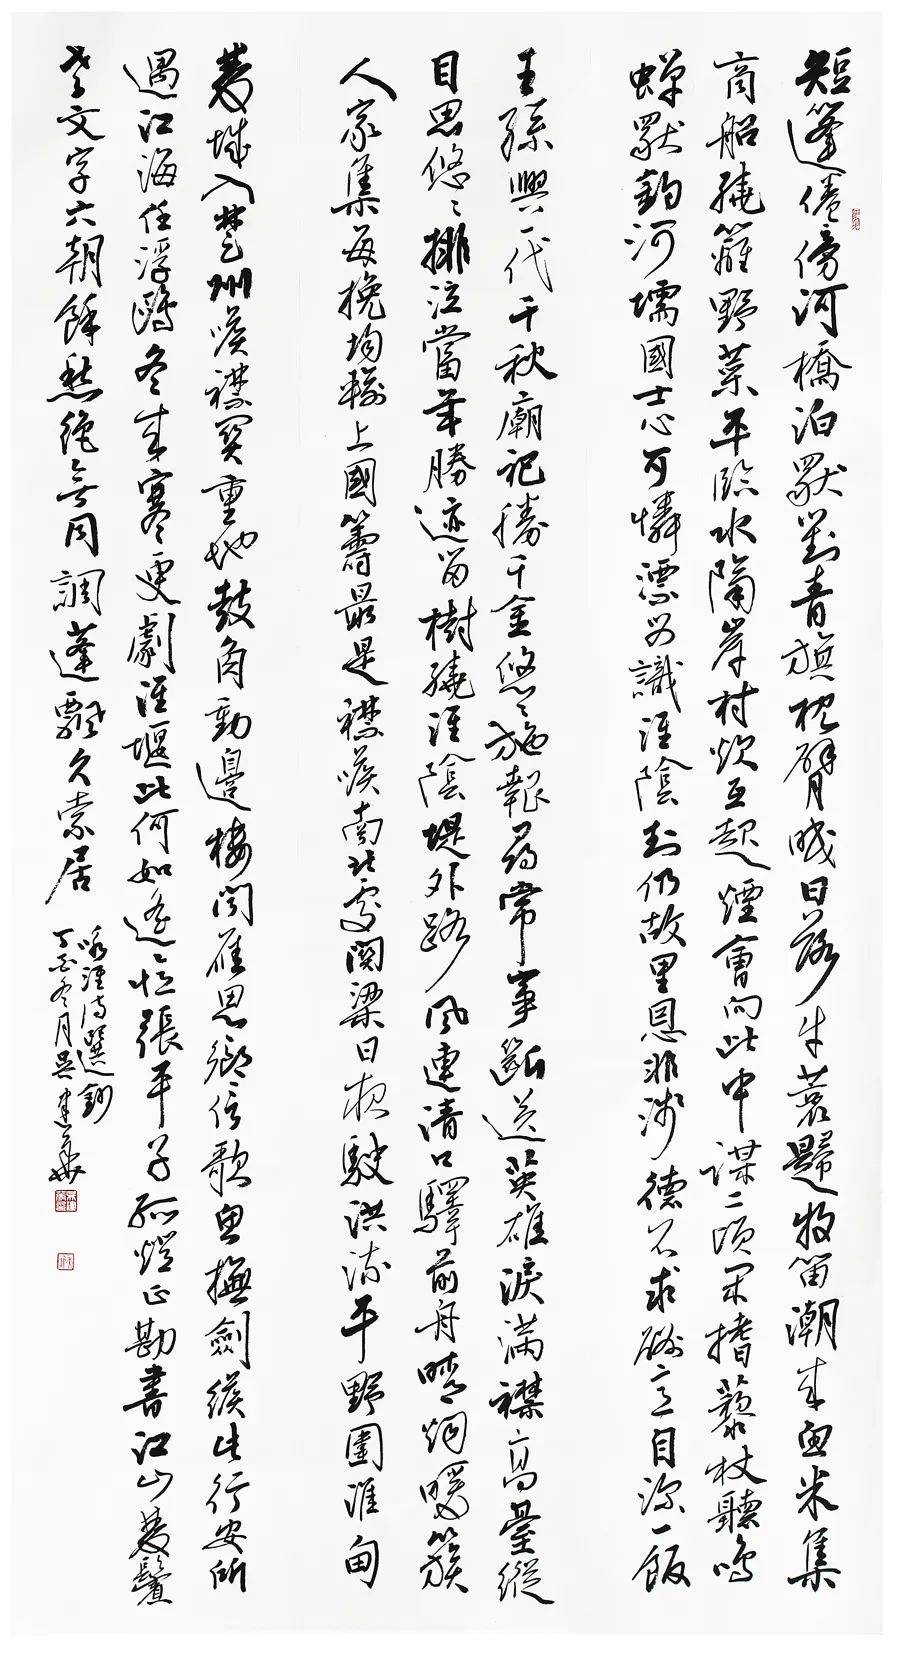 短篷倦傍河橋泊獨對青旗枕臂眠日落牛蓑歸牧笛潮來魚米集
商船繞籬野菜平臨水隔岸村炊互起煙會向此中謀二頃閑搘藜杖聽鳴
蟬獨釣河壖國士心可憐漂母識淮陰封仍故里恩非淺德不求酬意自深一飯
王孫興一代千秋廟祀勝千金悠悠施報尋常事斷送英雄淚滿襟高臺縱
目思悠悠排注當年勝迹留樹繞淮陰堤外路風連清口驛前舟晴烟暖簇
人家集芻挽均輸上國籌最是襟喉南北處關梁日夜駛洪流平野圍淮甸
荒城入楚州喉襟關重地鼓角動邊樓聞雁思鄉信歌魚撫劍緱此行安所
遇江海任浮鷗冬來寒更劇淮堰此何如遙憶張平子孤燈正勘書江山雙鬢
老文字六朝餘愁絕無同調蓬飄久索居
詠淮詩選鈔
丁酉冬月吳建華